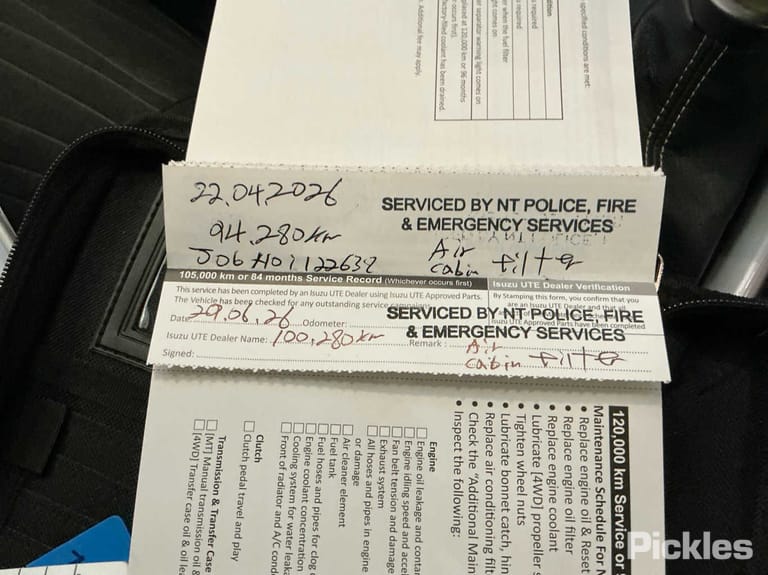 22.04.2026
SERVICED BY NT POLICE, FIRE
& EMERGENCY SERVICES
94,280km
Air
cabin filter
JOB NO: 122639
105,000 km or 84 months Service Record (Whichever occurs first)
Isuzu UTE Dealer Verification
This service has been completed by an Isuzu UTE Dealer using Isuzu UTE Approved Parts.
By Stamping this form, you confirm that you
The Vehicle has been checked for any outstanding service campaigns.
are an Isuzu UTE Dealer and that all
Date: 29.06.26 Odometer:
SERVICED BY NT POLICE, FIRE
& EMERGENCY SERVICES
Isuzu UTE Dealer Name: 100,280km Remark:
Air
cabin filter
Signed:
120,000 km Service or
Maintenance Schedule For
• Replace engine oil & Reset
• Replace engine oil filter
• Replace engine coolant
• Lubricate [4WD] propeller
• Tighten wheel nuts
• Lubricate bonnet catch,
• Replace air conditioning
• Check the "Additional
• Inspect the following:
Engine
Engine oil leakage and
Engine idling speed and
Fan belt tension and damage
Exhaust system
All hoses and pipes in engine
or damage
Air cleaner element
Fuel tank
Fuel hoses and pipes for
Engine coolant concentration
Cooling system for water
Front of radiator and A/C
Clutch
Clutch pedal travel and play
Transmission & Transfer Case
[MT] Manual transmission oil
[4WD] Transfer case oil & oil
specified conditions are met:
is required
is required
when the fuel filter
light comes on
separator warning light comes on
at 120,000 km or 96 months
occurs first).
factory-filled coolant has been drained.
Additional fee may apply.
Pickles